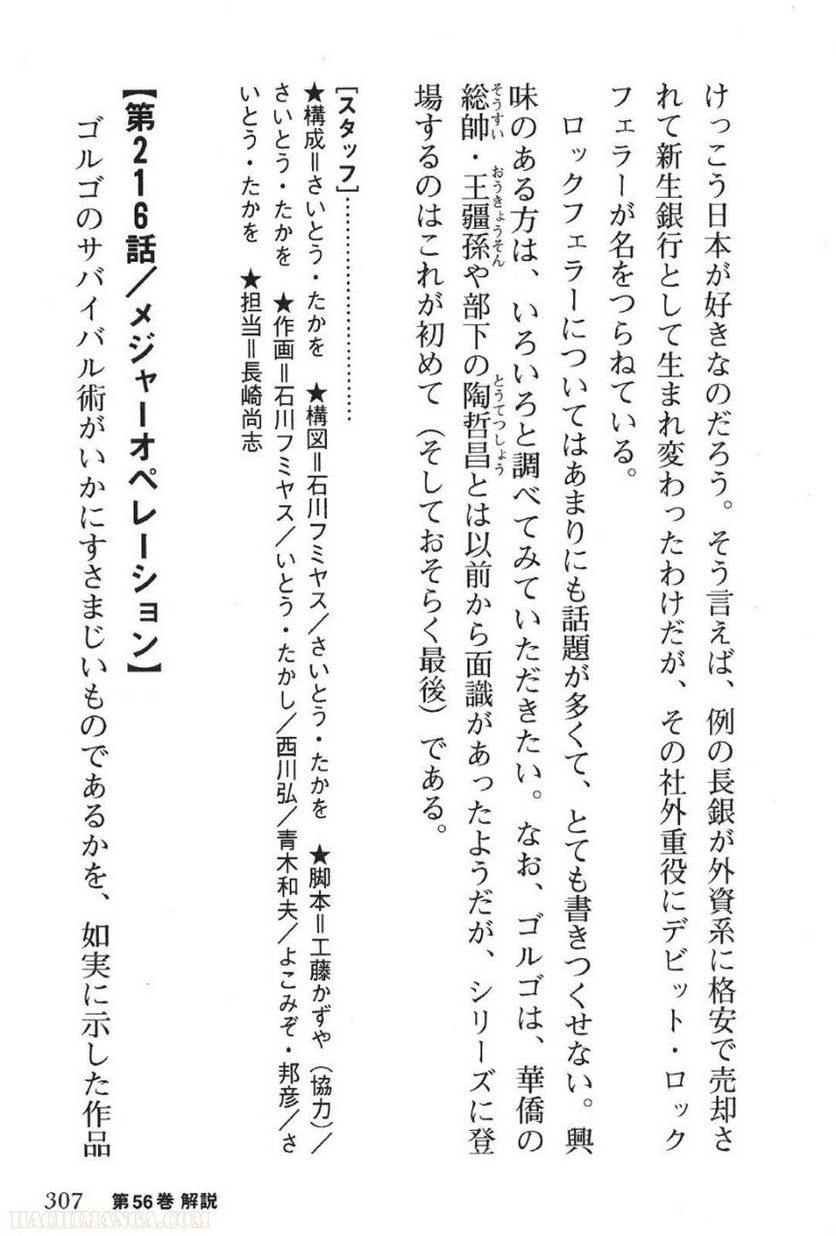 けっこう日本が好きなのだろう。そう言えば、例の長銀が外資系に格安で売却さ
れて新生銀行として生まれ変わったわけだが、その社外重役にデビット・ロック
フェラーが名をつらねている。
ロックフェラーについてはあまりにも話題が多くて、とても書きつくせない。興
味のある方は、いろいろと調べてみていただきたい。なお、ゴルゴは、華僑の
総帥・王疆孫や部下の陶哲昌とは以前から面識があったようだが、シリーズに登
そうすい おうきょうそん とうてつしょう
場するのはこれが初めて（そしておそらく最後）である。
［スタッフ］………………………………
★構成＝さいとう・たかを ★構図＝石川フミヤス／さいとう・たかを ★脚本＝工藤かずや（協力）／
さいとう・たかを ★作画＝石川フミヤス／いとう・たかし／西川弘／青木和夫／よこみぞ・邦彦／さ
いとう・たかを ★担当＝長崎尚志
【第216話／メジャーオペレーション】
ゴルゴのサバイバル術がいかにすさまじいものであるかを、如実に示した作品
307 第56巻 解説
HACHIMANGA.COM